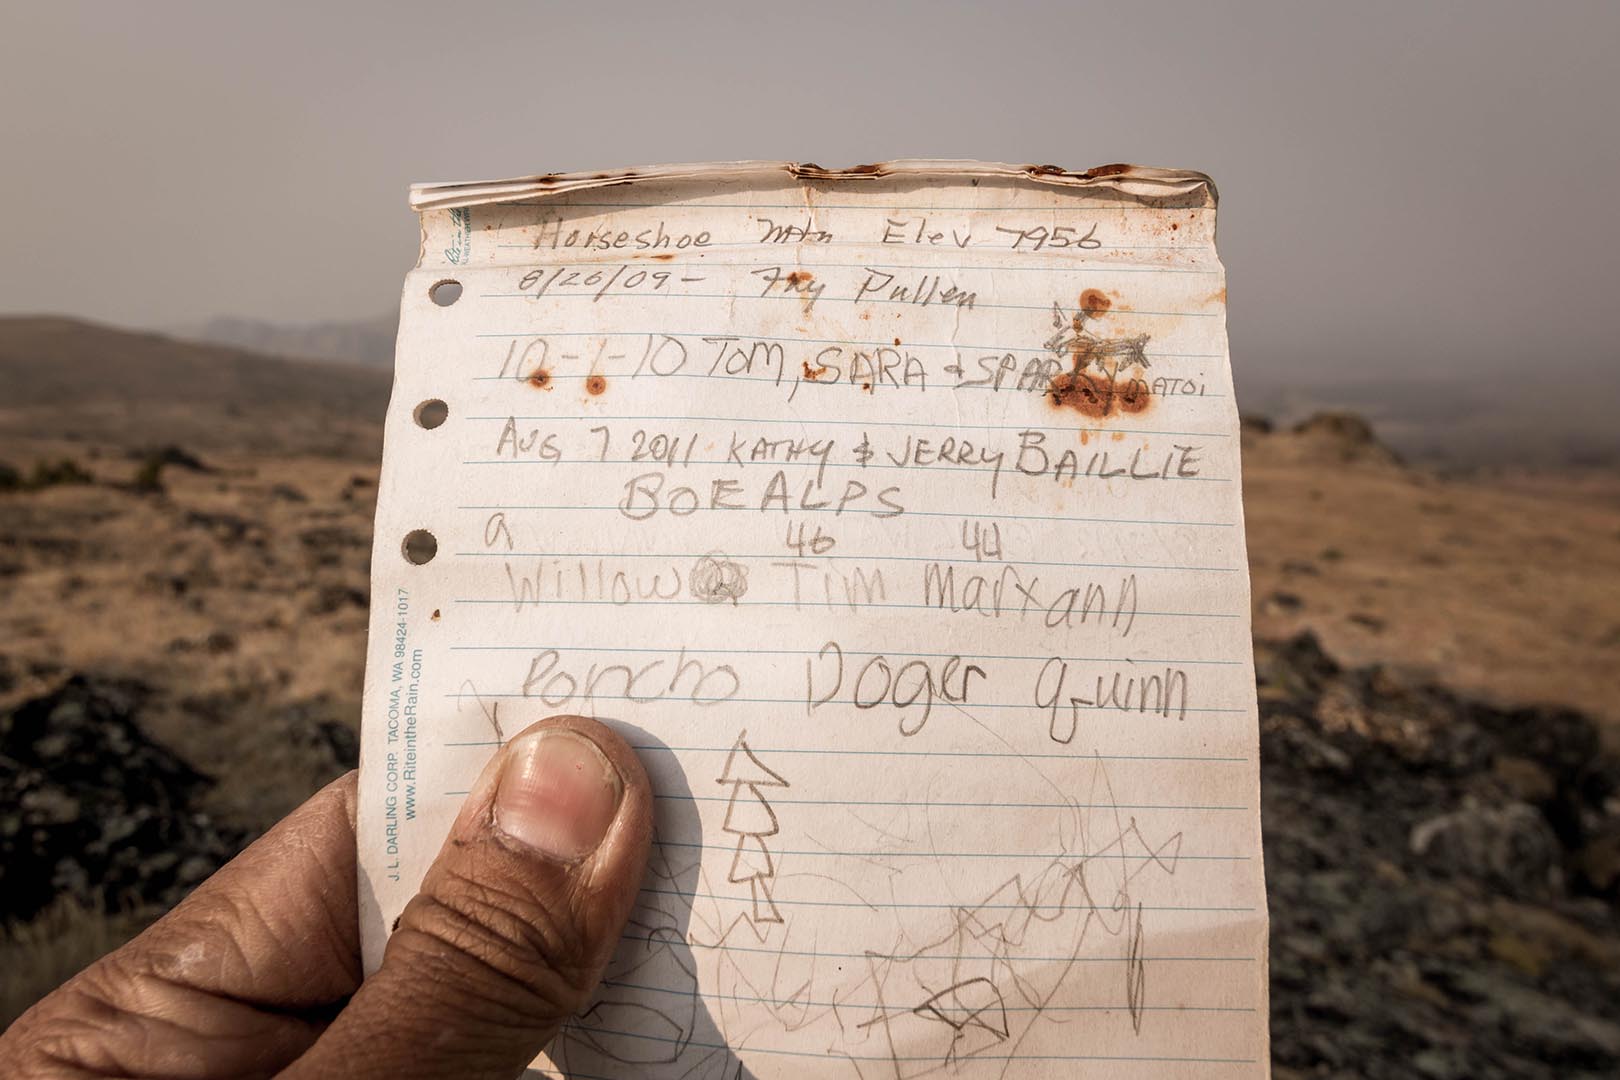 Horseshoe Mtn Elev 7956
8/26/09 - Fay Pullen
10-1-10 TOM, SARA & SPARKY MATOI
AUG 7 2011 KATHY & JERRY BAILLIE
BOEALPS
9 46 44
Willow Tim Maryann
Poncho Doger Quinn
J. L. DARLING CORP. TACOMA, WA 98424-1017
www.RiteintheRain.com